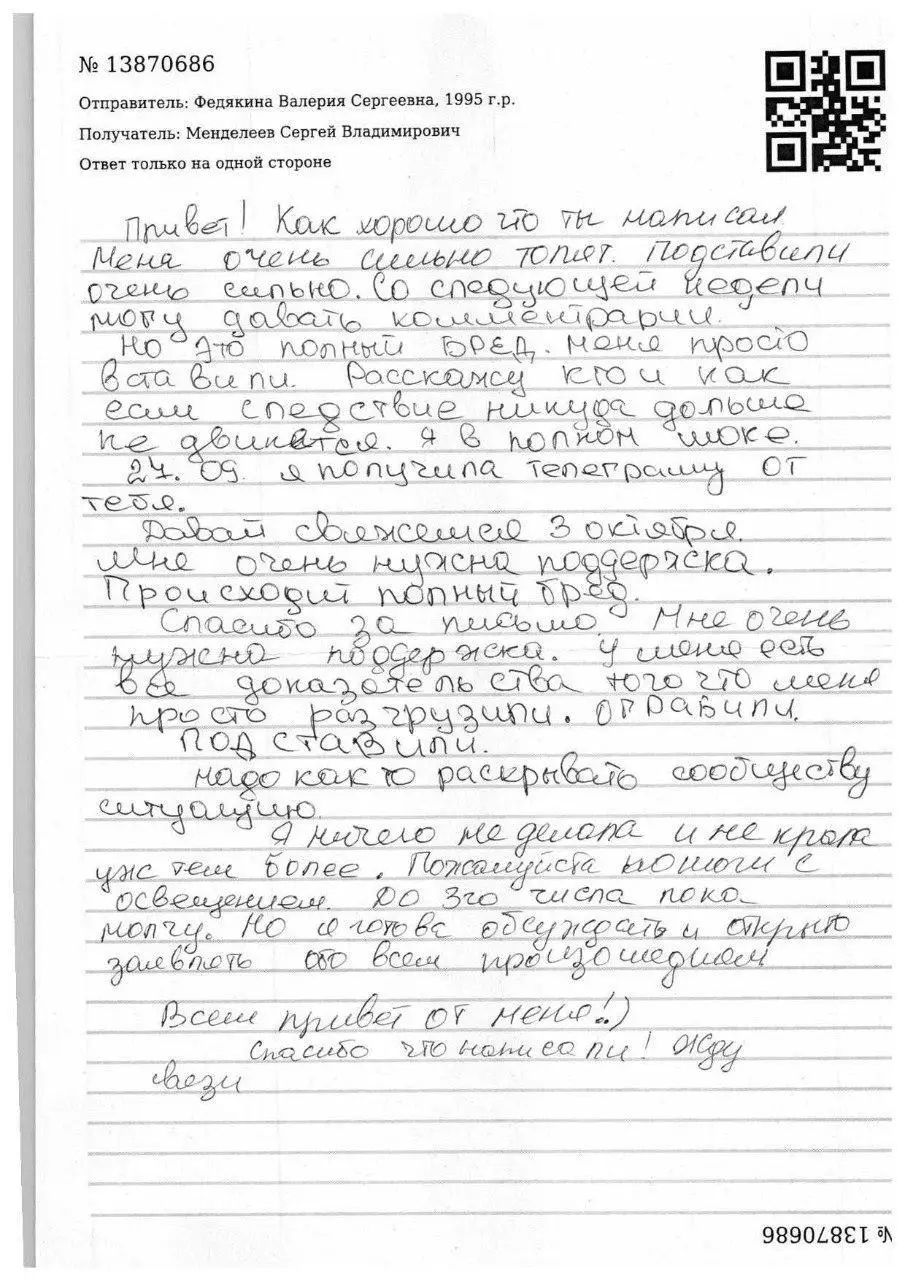 № 13870686
Отправитель: Федякина Валерия Сергеевна, 1995 г.р.
Получатель: Менделеев Сергей Владимирович
Ответ только на одной стороне
Привет! Как хорошо что ты написал
Меня очень сильно топят. Подставили
очень сильно. Со следующей недели
могу давать комментрарии.
Но это полный БРЕД. Меня просто
вставили. Расскажу кто и как
если следствие никуда дальше
не двинется. Я в полном шоке.
27.09. я получила телеграмму от
тебя.
Давай свяжемся 3 октября.
Мне очень нужна поддержка.
Происходит полный бред.
Спасибо за письмо. Мне очень
нужна поддержка. У меня есть
все доказательства того что меня
просто разгрузили. ограбили.
ПОДСТАВИЛИ.
надо как то раскрывать сообществу
ситуацию.
Я ничего не делала и не крала
уж тем более. Пожалуйста помоги с
освещением. До 3го числа пока
молчу. Но я готова обсуждать и открыто
заявлять обо всем произошедшем
Всем привет от меня!)
Спасибо что написали! Жду
связи
№ 13870686